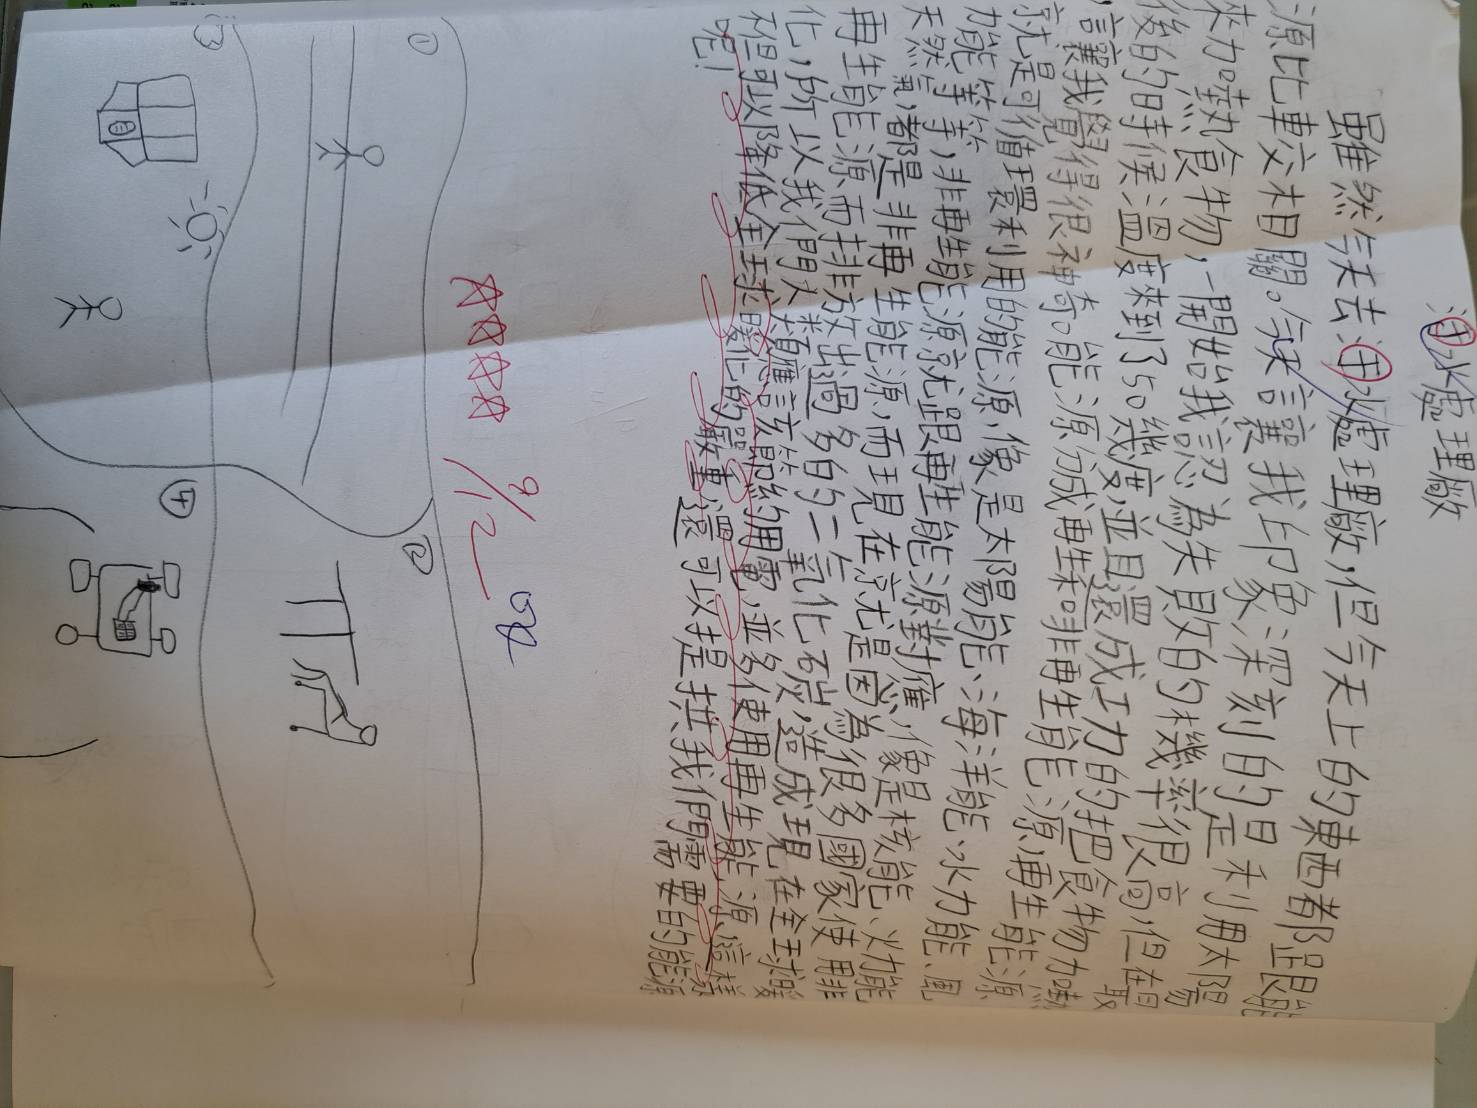 汙水處理廠
雖然今天去汙水處理廠,但今天上的東西都跟能
源比較相關。今天讓我印象深刻的是利用太陽
來加熱食物,一開始我認為失敗的機率很高,但在最
後的時候溫度來到了50幾度,並且還成功的把食物加熱
,讓我覺得很神奇。能源分成再生和非再生能源,再生能源
就是可循環利用的能源,像是太陽能、海洋能、水力能、風
力能等等,非再生能源就跟再生能源對應,像是核能、火力能
天然氣,都是非再生能源,而現在就是因為很多國家使用非
再生能源而排放出過多的二氧化碳,造成現在全球暖
化,所以我們人類應該節約用電,並多使用再生能源,這樣
不但可以降低全球暖化的嚴重,還可以提供我們需要的能源
呢!
9/12
①
②
③
④